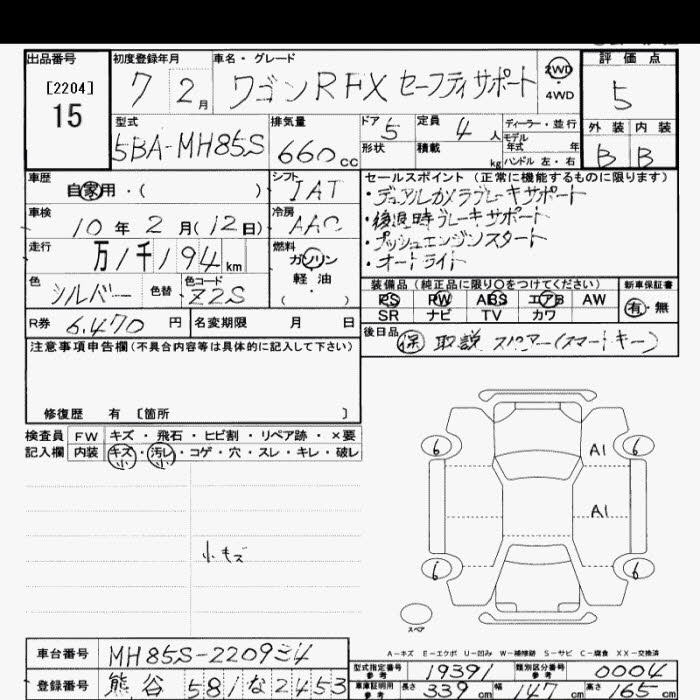 出品番号
[2204]
15
初度登録年月
7 2月
車名・グレード
ワゴンRFX セーフティサポート
2WD
・4WD
評価点
5
外装 内装
B B
型式
5BA-MH85S
排気量
660cc
ドア 5
形状
定員 4人
積載 kg
ディーラー・並行
モデル年式 年
ハンドル 左・右
車歴
自家用・( )
シフト
IAT
セールスポイント(正常に機能するものに限ります)
・デュアルカメラブレーキサポート
・後退時ブレーキサポート
・プッシュエンジンスタート
・オートライト
車検
10年2月(12日)
冷房
AAC
走行
万1千194km
燃料
ガソリン
軽油
( )
色
シルバー
色替
色コード
Z2S
装備品(純正品に限り○をつけてください)
PS PW ABS エアB AW
SR ナビ TV カワ
新車保証書
有・無
R券 6,470円
名変期限 月 日
後日品
保 取説 スペアー(スマートキー)
注意事項申告欄(不具合内容等は具体的に記入して下さい)
修復歴 有 [箇所 ]
検査員
記入欄
FW キズ・飛石・ヒビ割・リペア跡・×要
内装 キズ・汚レ・コゲ・穴・スレ・キレ・破レ
小 小
小キズ
6 A1 6
A1
6 6
スペア
A-キズ E-エクボ U-凹み W-補修跡 S-サビ C-腐食 XX-交換済
車台番号
MH85S-220934
登録番号
熊谷 581 な 2453
型式指定番号
参考
19391
類別区分番号
参考
0004
車庫証明用
参考
長さ 339cm 幅 147cm 高さ 165cm